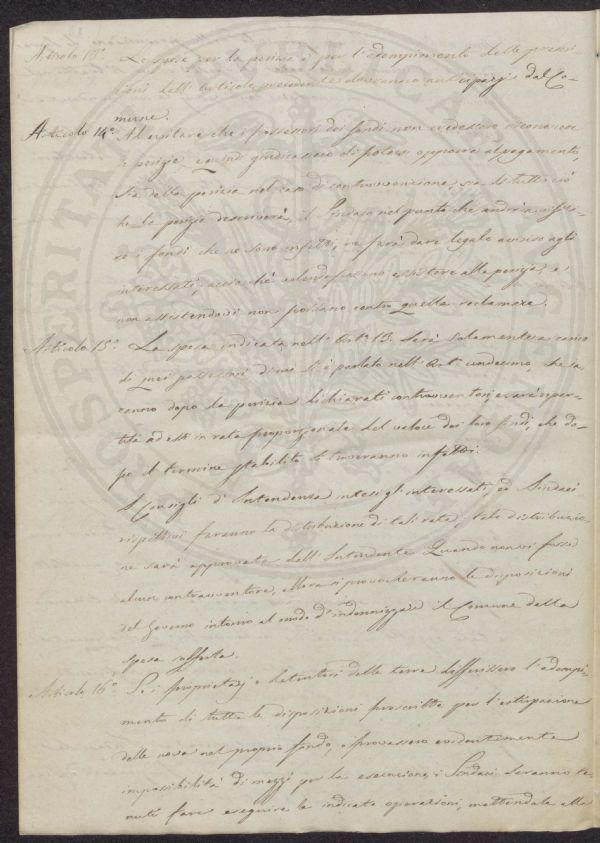 Articolo 13° Le spese per la perizia e per l'adempimento delle prescri-
zioni dell'articolo precedente dovranno anticiparsi dal Co-
mune.
Articolo 14° Ad evitare che i possessori dei fondi non credessero riconoscere
le perizie, e quindi giudicassero di potersi opporre al pagamento,
sia della perizia nel caso di contravvenzione, sia di tutto ciò
che la perizia descriverà, il Sindaco nel punto che andrà a visita-
re i fondi che ne sono infetti, ne farà dare legale avviso agli
interessati, acciocchè volendo possano assistere alla perizia, e
non assistendovi non possano contro quella reclamare.
Articolo 15° La spesa indicata nell'Art° 13. Sarà solamente a carico
di quei possessori di cui si è parlato nell'Art° undecimo che sa-
ranno dopo la perizia dichiarati contravventori, e sarà ripar-
tita ad essi in rata proporzionale del valore dei loro fondi, che do-
po il termine stabilito si troveranno infetti.
I Consigli d'Intendenza intesi gl'interessati, ed i Sindaci
rispettivi faranno la distribuzione di tali rate, tale distribuzio-
ne sarà approvata dall'Intendente. Quando non vi fosse
alcun contravventore, allora si provocheranno le disposizioni
del Governo intorno al modo d'indennizzare il Comune della
spesa sofferta.
Articolo 16° Se i proprietarj e detentori delle terre differissero l'adempi-
mento di tutte le disposizioni prescritte per l'estirpazione
delle uova nel proprio fondo, o provassero evidentemente
impossibilità di mezzi per la esecuzione, i Sindaci saranno te-
nuti fare eseguire le indicate operazioni, mettendole alla